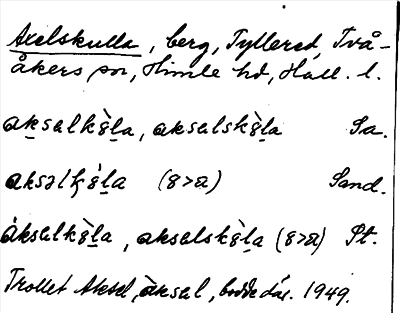 Axelskulla, berg, Tyllered, Två-
åkers sn, Himle hd, Hall. l.
aksalkùla, aksalskùla Sa.
aksəlkùla (8>a) Sand.
àksalkùla, aksalskùla (8>a) St.
Trollet Aksel, àksal, bodde där. 1949.